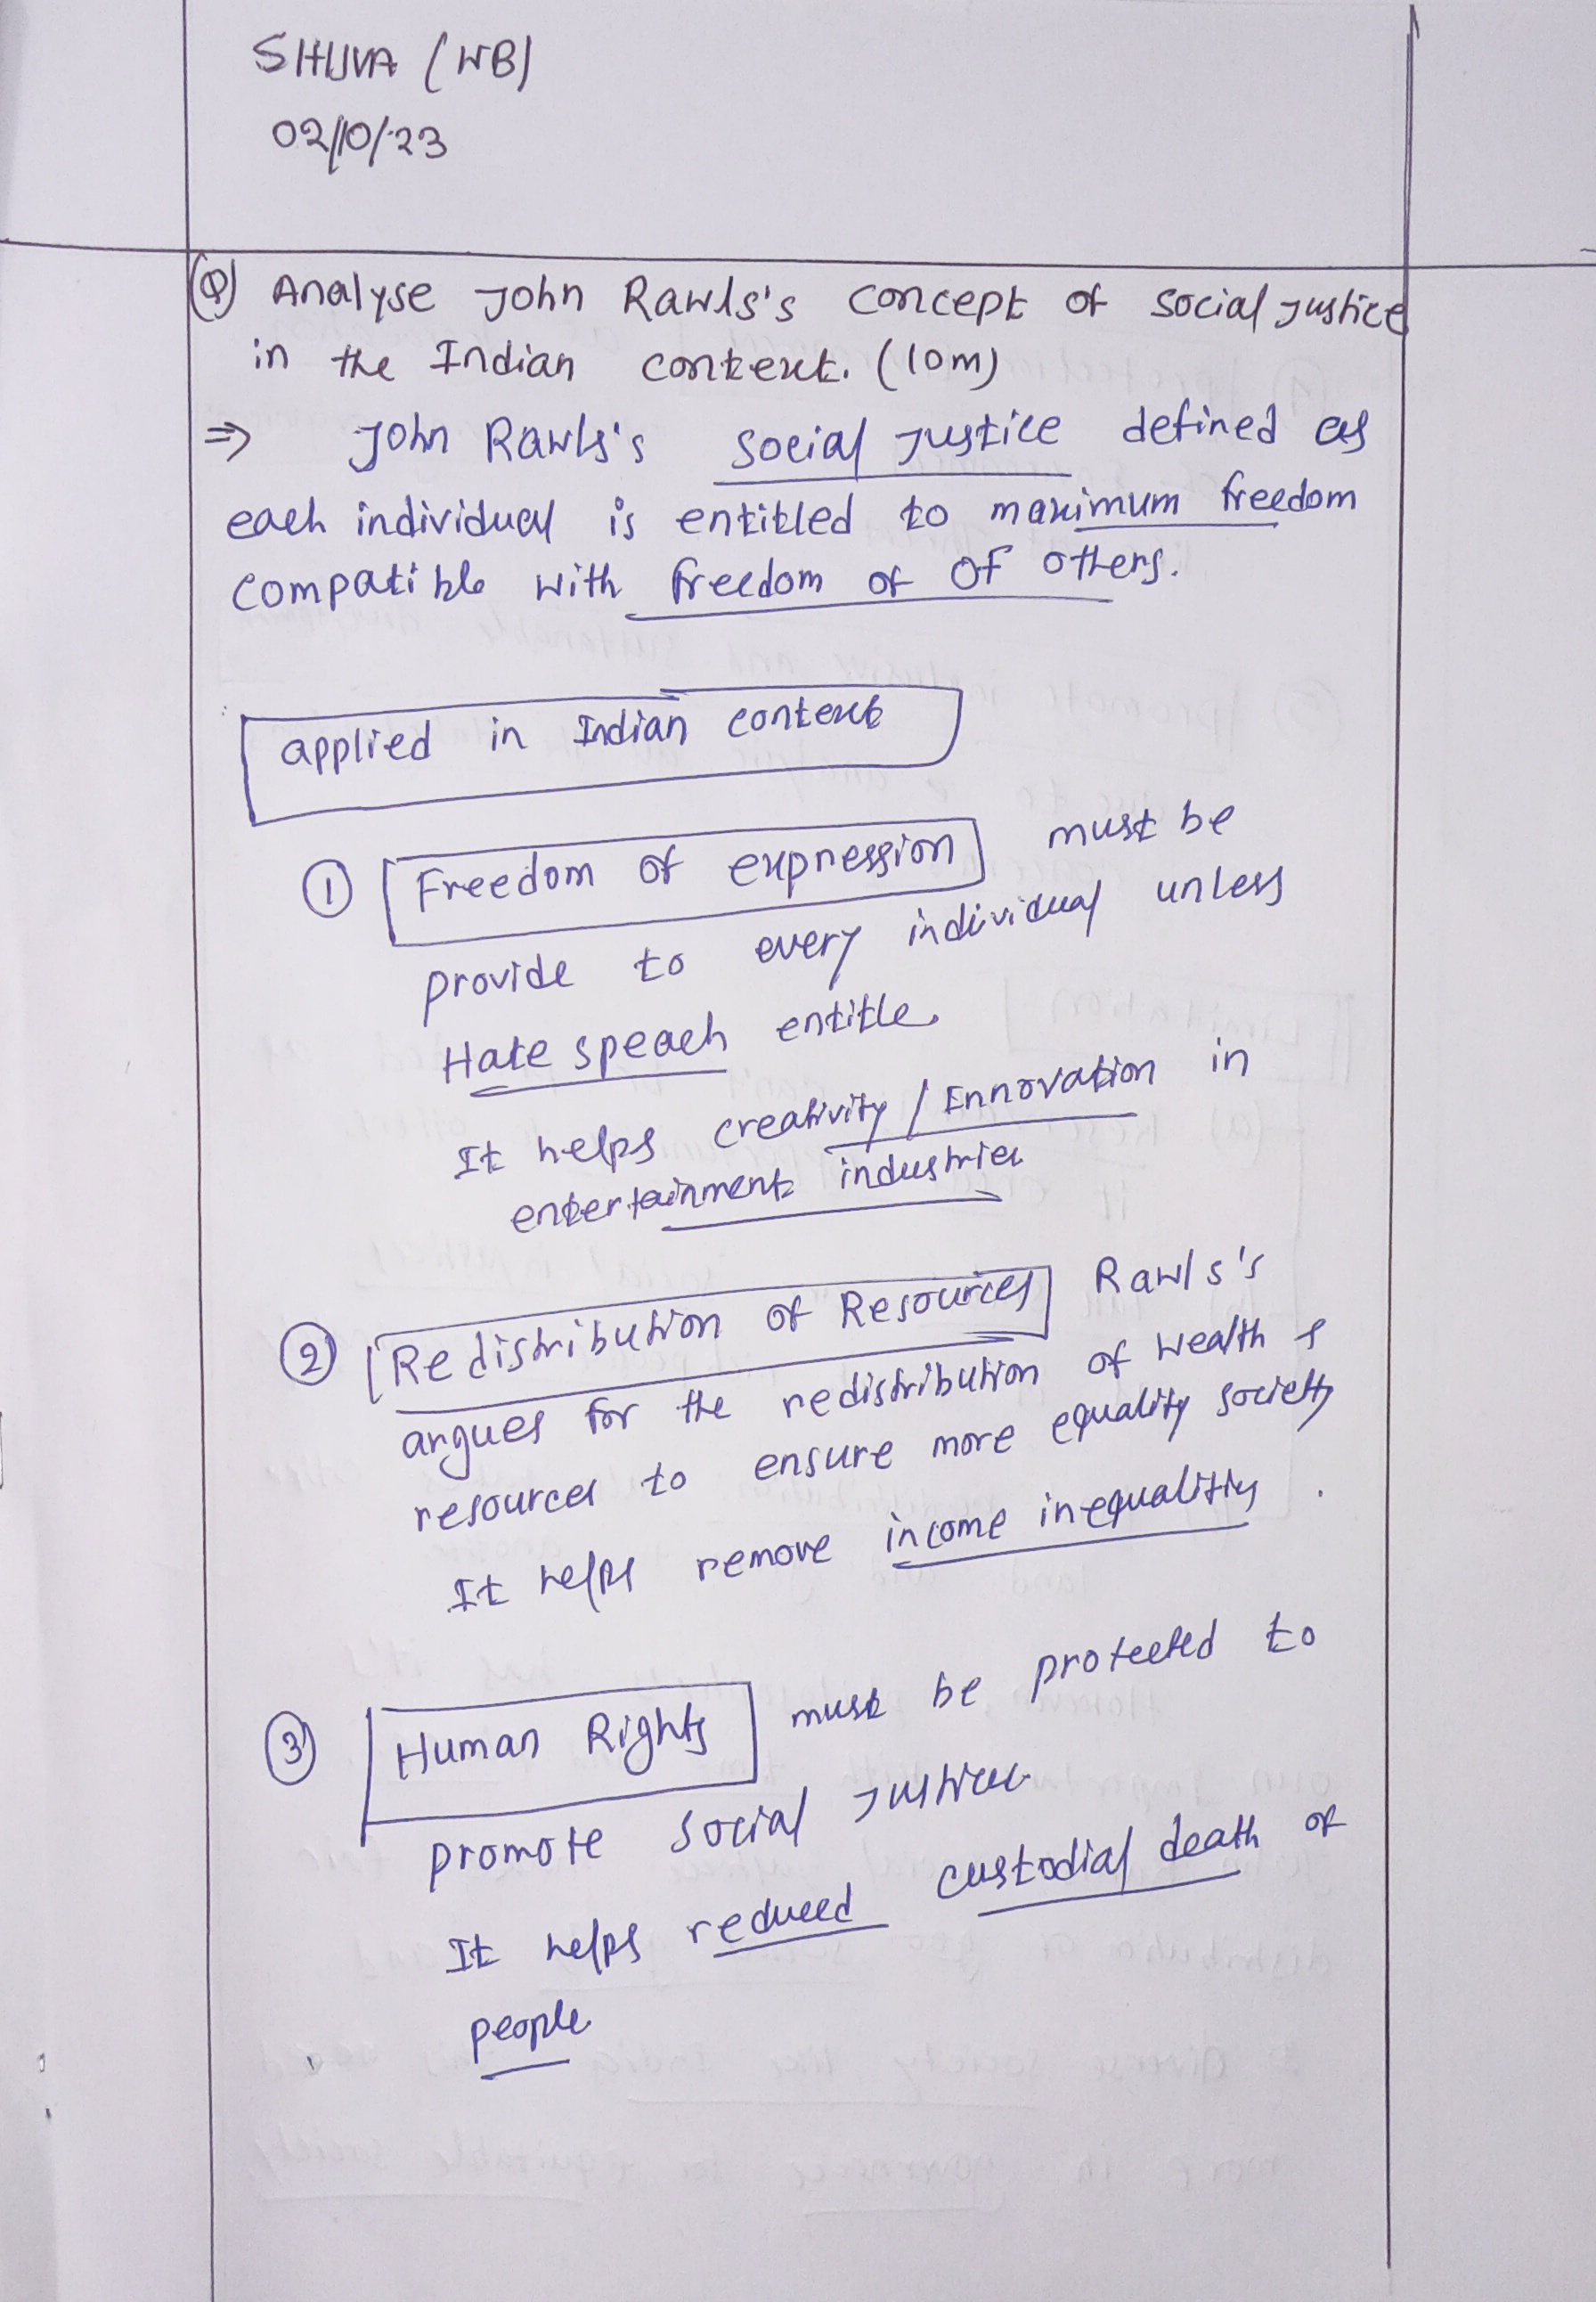 SHIJVA (WB)
02/10/23
(Q) Analyse John Rawls's concept of social justice
in the Indian context. (10m)
⇒ John Rawls's social justice defined as
each individual is entitled to maximum freedom
compatible with freedom of of others.
applied in Indian context
① Freedom of expression must be
provide to every individual unless
Hate speach entitle.
It helps creativity / Ennovation in
entertainment industries
② Redistribution of Resources Rawls's
argues for the redistribution of wealth &
resources to ensure more equality society
It helps remove income inequalities.
③ Human Rights must be protected to
promote social justice
It helps reduced custodial death of
people